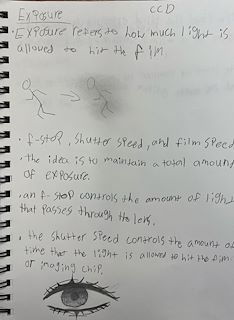 Exposure CCD
• Exposure refers to how much light is
allowed to hit the film.
• f-stop, shutter speed, and film speed
• the idea is to maintain a total amount
of exposure.
• an f-stop controls the amount of light
that passes through the lens.
• the shutter speed controls the amount of
time that the light is allowed to hit the film
or imaging chip.